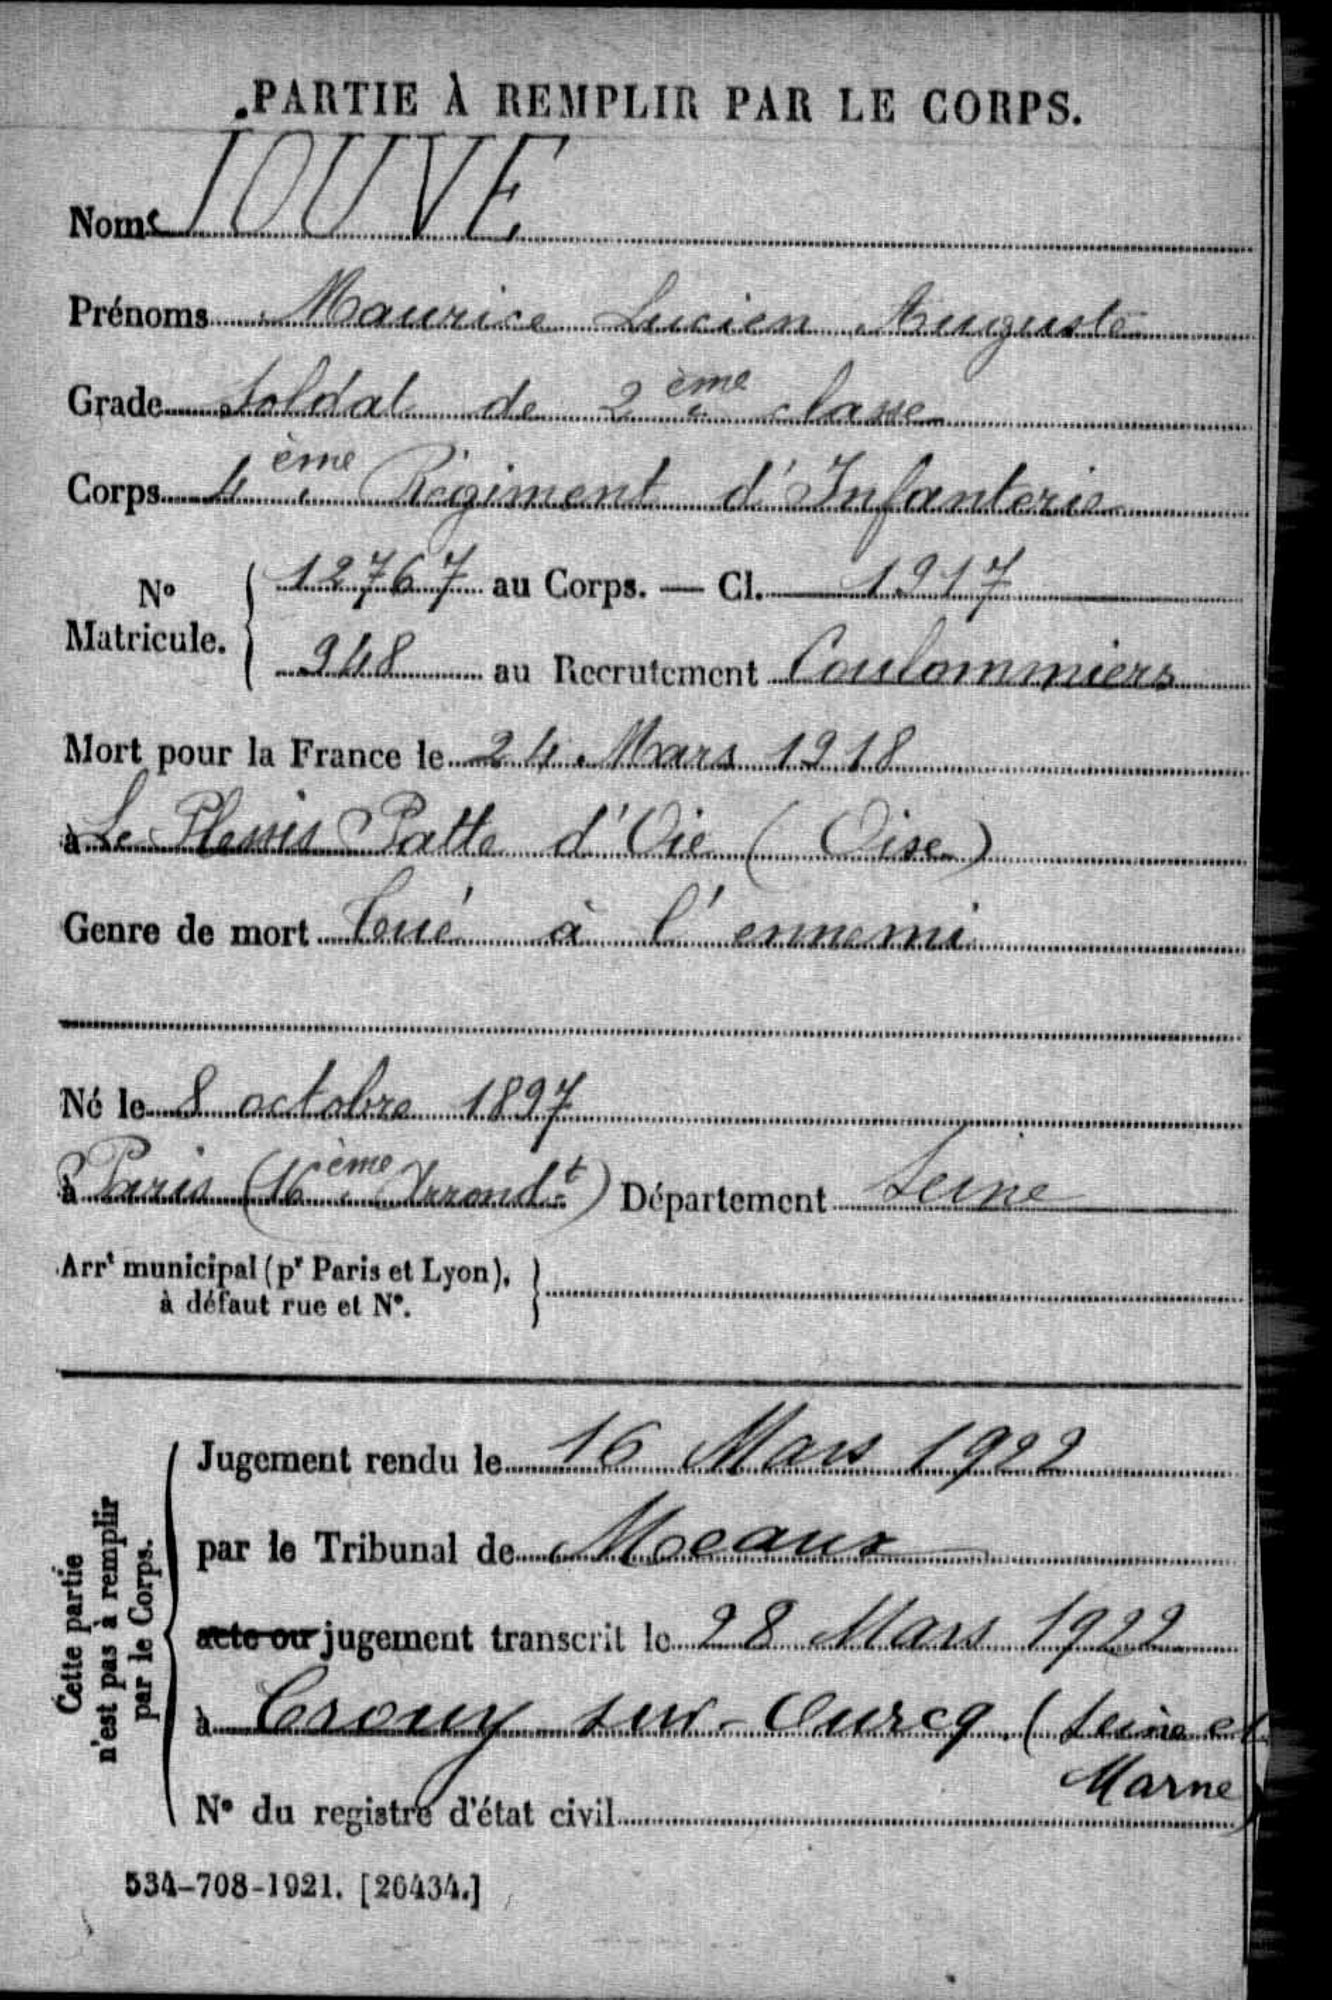 PARTIE À REMPLIR PAR LE CORPS.
Nom JOUVE
Prénoms Maurice Lucien Auguste
Grade Soldat de 2ème classe
Corps 4ème Régiment d'Infanterie
N° Matricule. { 12767 au Corps. — Cl. 1917
948 au Recrutement Coulommiers
Mort pour la France le 24 Mars 1918
à Le Plessis Patte d'Oie (Oise)
Genre de mort Tué à l'ennemi
Né le 8 octobre 1897
à Paris (16ème Arrondt) Département Seine
Arrt municipal (pr Paris et Lyon), à défaut rue et N°. }
Cette partie n'est pas à remplir par le Corps.
Jugement rendu le 16 Mars 1922
par le Tribunal de Meaux
acte ou jugement transcrit le 28 Mars 1922
à Crouy sur-Ourcq (Seine et
Marne)
N° du registre d'état civil
534-708-1921. [26434.]